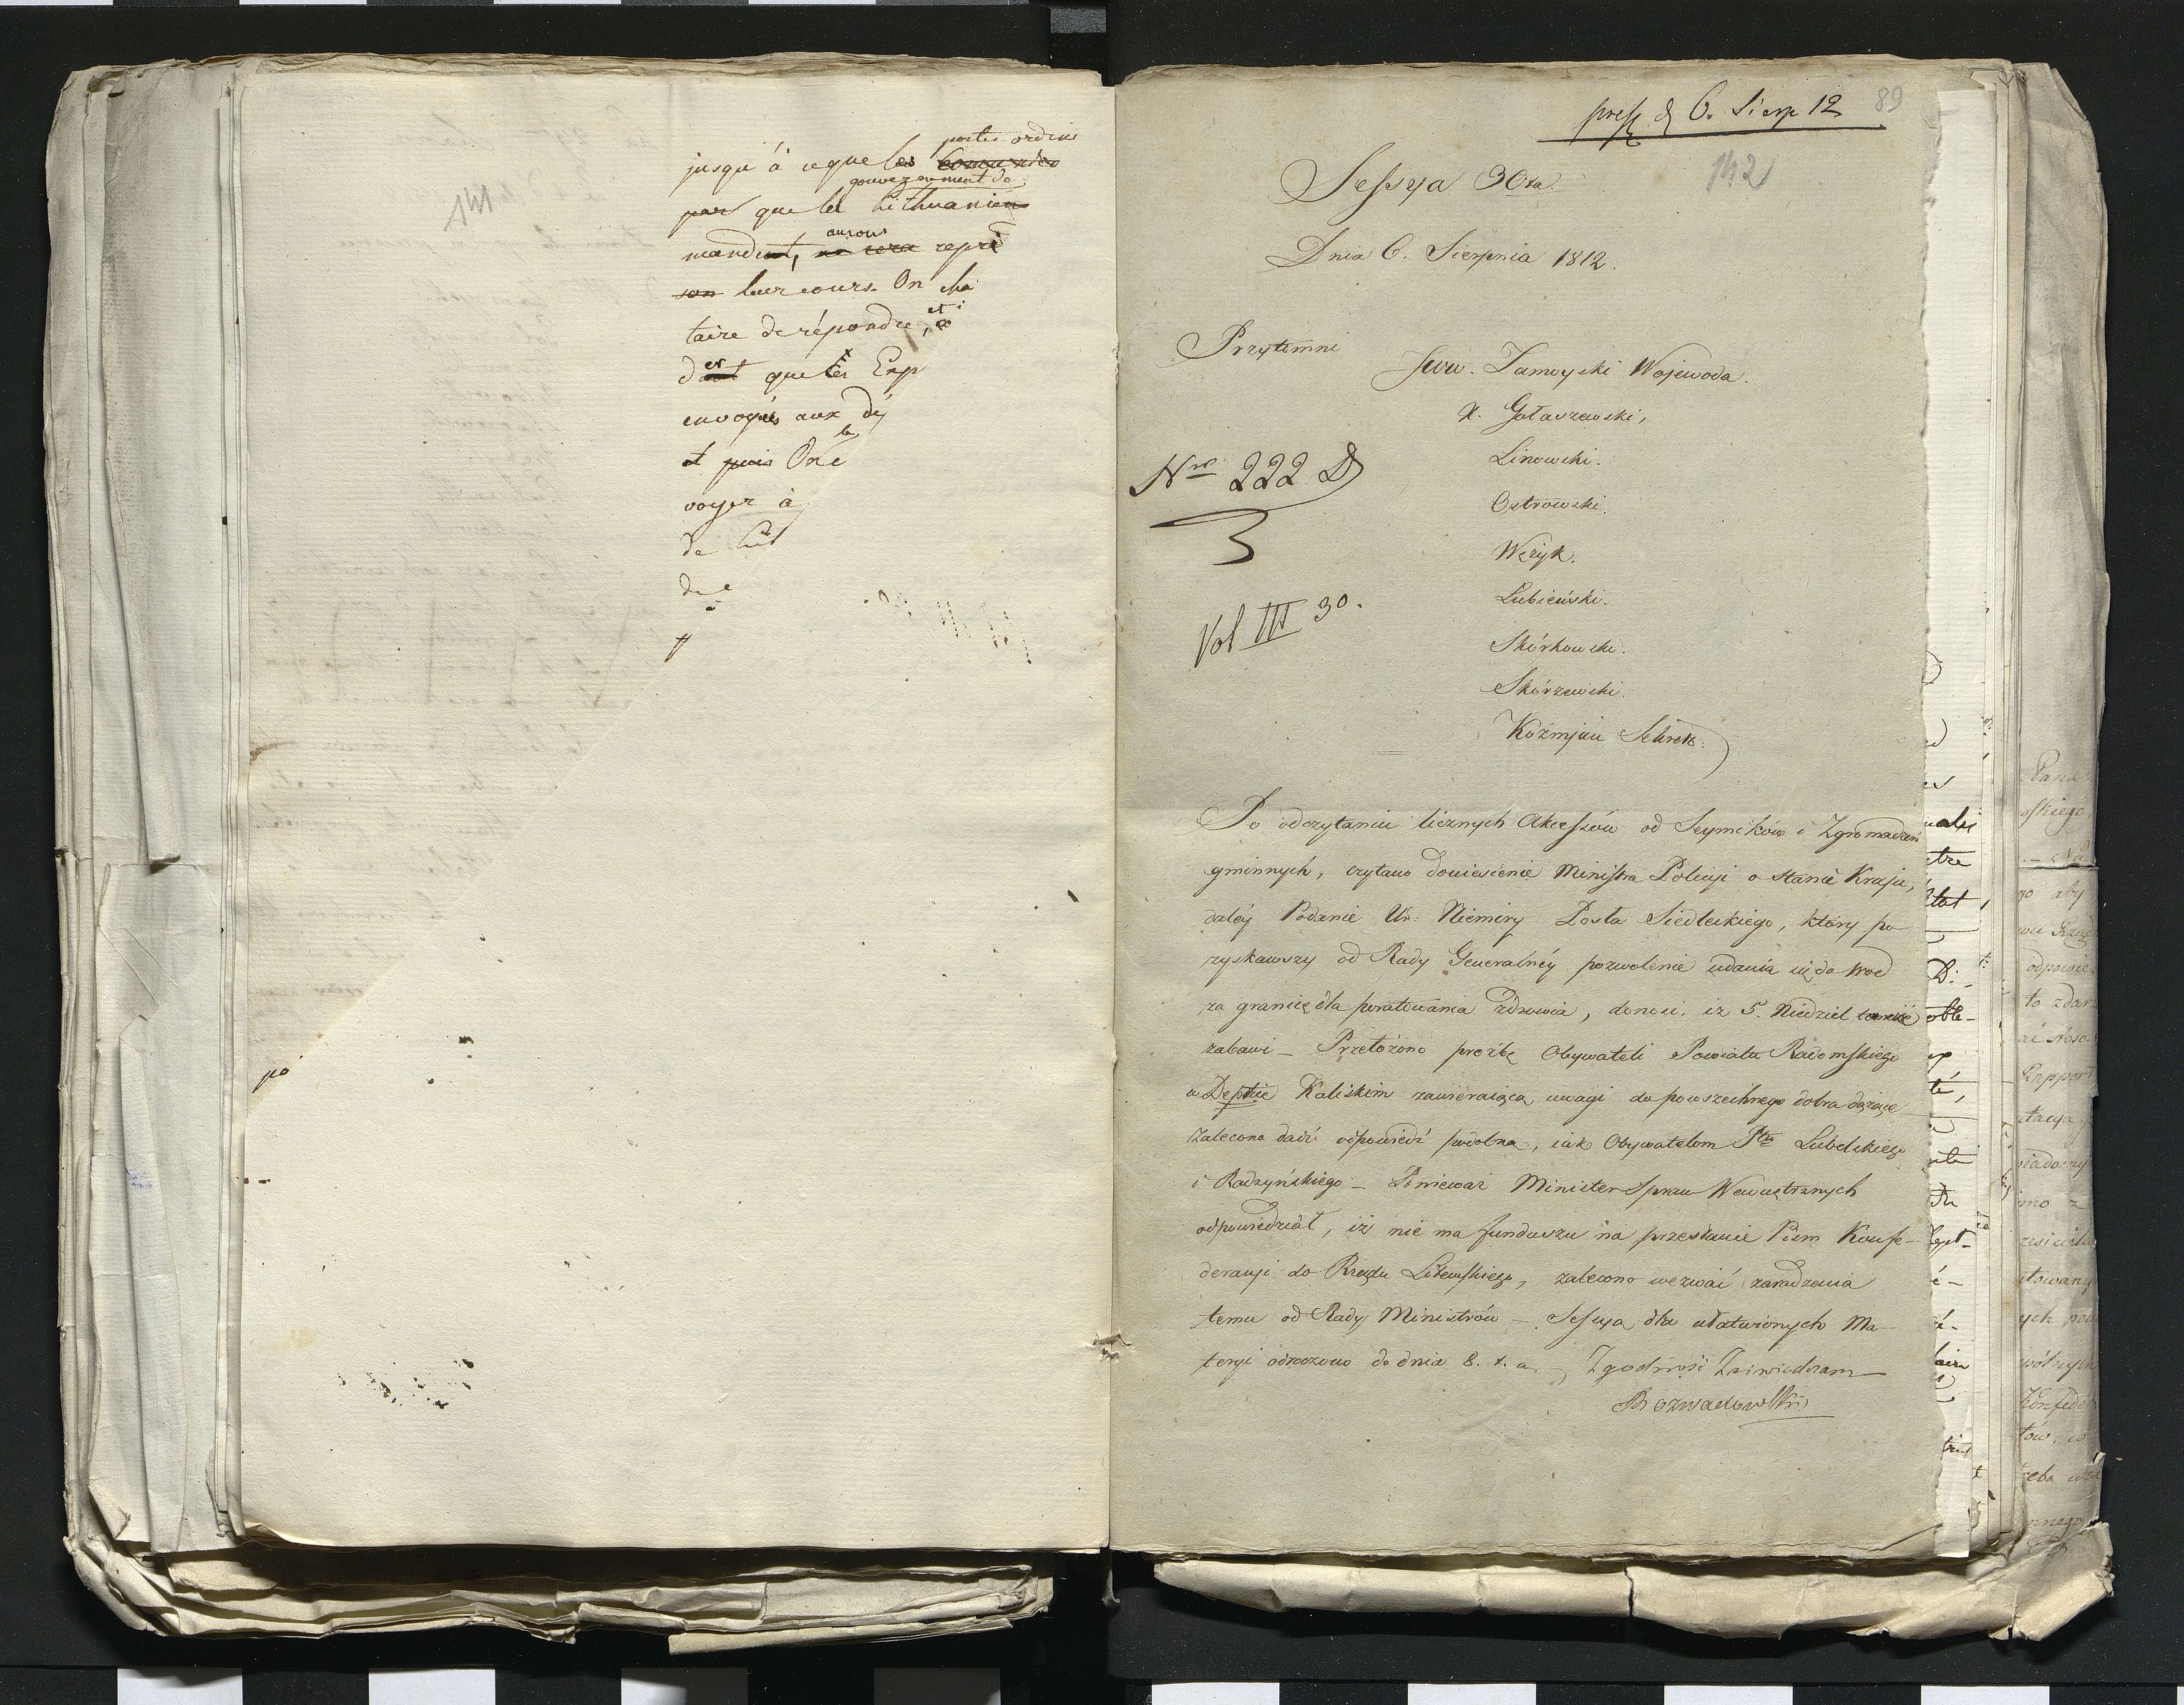 postes ordin
jusqu'à ceque les
gouvernement de
que les Lithuanien
auront
mandent, ne sera repri
son leur cours. On
taire de répondre,
que les Exp
envoyés aux dé
et puis On
voyer à
de Lit
de
po
141
89
6. Sierp 12
142
Sessya 30ta.
Dnia 6. Sierpnia 1812.
Przytomni
Jww. Zamoyski Wojewoda.
X. Gołaszewski,
Linowski.
Nro 222 D
Ostrowski.
Wężyk.
Lubieński.
Vol III 30.
Skórkowski.
Skórzewski.
Koźmian Sekret:
Po odczytaniu licznych Akcessów od Seymików i Zgromadzeń
gminnych, czytano doniesienie Ministra Policyi o stanie Kraju,
daléy Podanie Ur: Niemiry Posła Siedleckiego, który po
zyskawszy od Rady Generalnéy pozwolenie udania się do wod
za granicę dla poratowania zdrowia, donosi, iż 5. Niedziel tamże
zabawi – Przełożono prożbę Obywateli Powiatu Radomskiego
w Deptcie Kaliskim zawieraiącą uwagi do powszechnego dobra dążące
zalecono dać odpowiedź podobną, iak Obywatelom Ptu Lubelskiego
i Radzyńskiego – Ponieważ Minister Spraw Wewnętrznych
odpowiedział, iż nie ma funduszu na przesłanie Pism Konfe-
deracyi do Rządu Litewskiego, zalecono wezwać zaradzenia
temu od Rady Ministrów – Sessya dla ułatwionych Ma-
teryi odroczono do dnia 8. t. m. Zgodność Zaświadczam
Rozwadowski